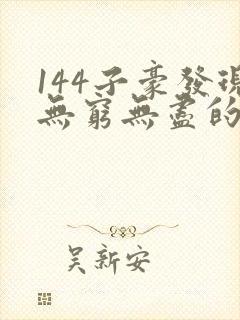 144子豪發現
無窮無盡的
吳新安